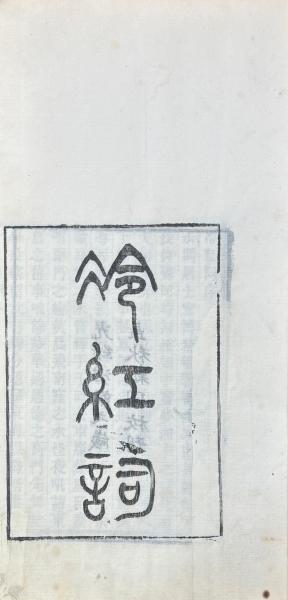 冷紅詞